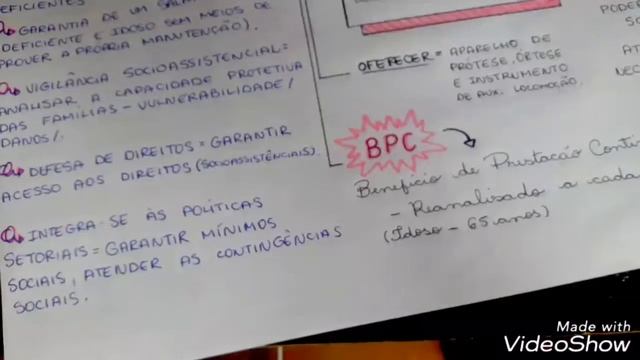 EFICIENTES
GARANTIA DE UM
DEFICIENTE E IDOSO SEM MEIOS DE
PROVER A PRÓPRIA MANUTENÇÃO).
VIGILÂNCIA SOCIOASSISTENCIAL =
ANALISAR A CAPACIDADE PROTETIVA
DAS FAMÍLIAS - VULNERABILIDADE/
DANOS/.
DEFESA DE DIREITOS = GARANTIR
ACESSO AOS DIREITOS (SOCIOASSISTÊNCIAIS)
INTEGRA-SE ÀS POLÍTICAS
SETORIAIS = GARANTIR MÍNIMOS
SOCIAIS, ATENDER AS CONTINGÊNCIAS
SOCIAIS.
OFERECER = APARELHO DE
PRÓTESE, ÓRTESE
E INSTRUMENTO
DE AUX. LOCOMOÇÃO.
PODE
S
AT
NEC
BPC
Benefício de Prestação Conti
- Reanalizado a cada
(Idoso - 65 anos)
Made with
VideoShow